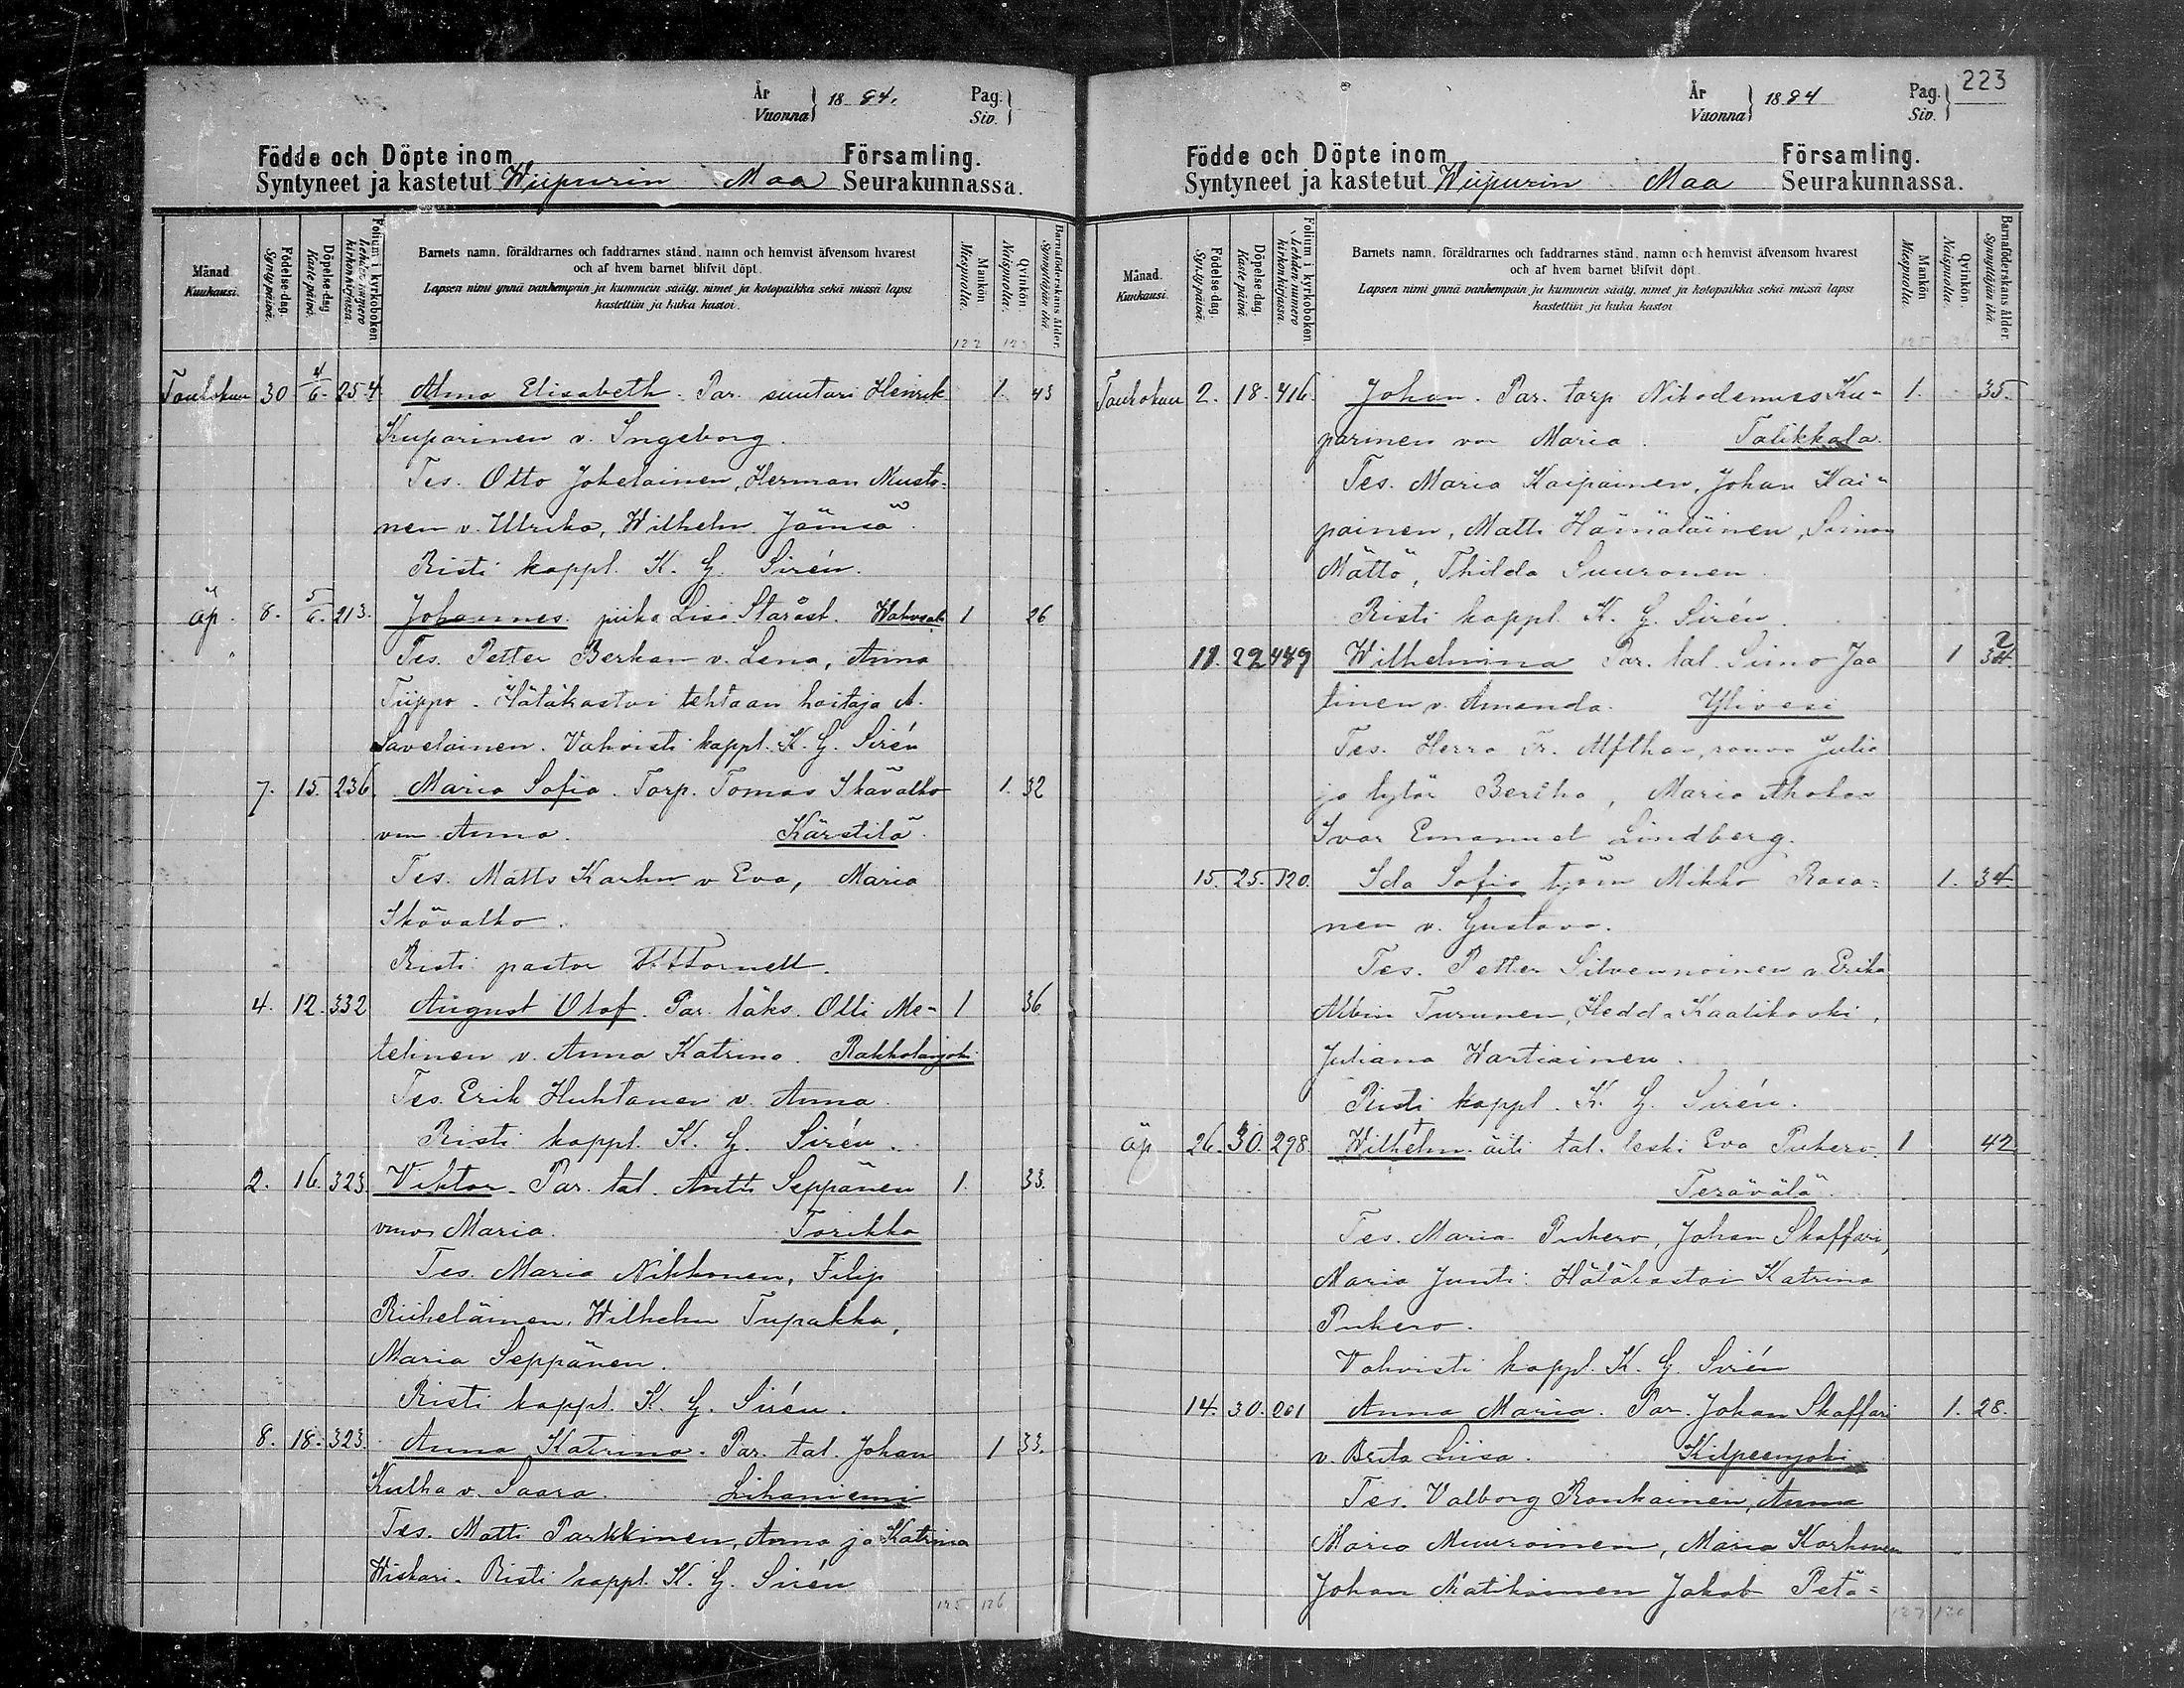 År
Vuonna } 18 84.
Pag.
Siv.
Födde och Döpte inom Församling.
Syntyneet ja kastetut Wiipurin Maa Seurakunnassa.
Månad.
Kuukausi.
Födelse-dag.
Syntypäivä.
Döpelse-dag.
Kastepäivä.
Folium i kyrkoboken.
Lehden numero kirkonkirjassa.
Barnets namn, föräldrarnes och faddrarnes stånd, namn och hemvist äfvensom hvarest
och af hvem barnet blifvit döpt.
Lapsen nimi ynnä vanhempain ja kummein sääty, nimet ja kotopaikka sekä missä lapsi
kastettiin ja kuka kastoi.
Mankön
Miespuolta.
Qvinkön.
Naispuolta.
Barnaföderskans ålder.
Synnyttäjän ikä.
Toukokuu 30 4/6. 254 Alma Elisabeth. Par. suutari Heinrik 1. 43
Kuparinen v. Ingeborg.
Tes. Otto Jokelainen, Herman Musto-
nen v. Ulrika, Wilhelm Jämsä.
Risti kappl. K. G. Sirén.
äp. 8. 5/6. 213. Johannes. piika Lisa Staräst. 1 26
Tes. Petter Berkan v. Lena, Anna
Tiippo. Hätäkastoi tehtaan hoitaja A.
Savelainen. Vahvisti kappl. K. G. Sirén
7. 15. 236. Maria Sofia. Torp. Tomas Skävalko 1. 32
vm Anna. Kärstilä.
Tes. Matts Karhu v Eva, Maria
Skävalko.
Risti pastor Tornell.
4. 12. 332 August Olof. Par. läks. Olli Me- 1 36
telinen v. Anna Katrina. Rakkolanjoki
Tes. Erik Huhtanen v. Anna.
Risti kappl. K. G. Sirén.
2. 16. 323. Viktor. Par. tal. Antti Seppänen 1. 33.
vmo Maria. Torikka
Tes. Maria Nikkonen, Filip
Riiheläinen, Wilhelm Tupakka,
Maria Seppänen.
Risti kappl. K. G. Sirén.
8. 18. 323. Anna Katrina. Par. tal. Johan 1 33.
Kultha v. Saara. Lihaniemi
Tes. Matti Parkkinen, Anna ja Katrina
Wiskari. Risti kappl. K. G. Sirén
125 126
223
År
Vuonna } 18 84
Pag.
Siv.
Födde och Döpte inom Församling.
Syntyneet ja kastetut Wiipurin Maa Seurakunnassa.
Månad.
Kuukausi.
Födelse-dag.
Syntypäivä.
Döpelse-dag.
Kastepäivä.
Folium i kyrkoboken.
Lehden numero kirkonkirjassa.
Barnets namn, föräldrarnes och faddrarnes stånd, namn och hemvist äfvensom hvarest
och af hvem barnet blifvit döpt.
Lapsen nimi ynnä vanhempain ja kummein sääty, nimet ja kotopaikka sekä missä lapsi
kastettiin ja kuka kastoi
Mankön
Miespuolta.
Qvinkön.
Naispuolta.
Barnaföderskans ålder.
Synnyttäjän ikä.
Toukokuu 2. 18. 416. Johan. Par. torp Nikodemus Ku- 1. 35.
parinen vm Maria. Talikkala.
Tes. Maria Kaipainen, Johan Kai-
painen, Matti Hämäläinen, Simon
Mättö, Thilda Suuronen.
Risti kappl. K. G. Sirén.
11. 22 Wilhelmina Par. tal. Simo Jaa 1
tinen v. Amanda. Ylivesi
Tes. Herra Fr. Alfthan, rouva Julia
ja tytär Bertha, Maria Ahokas
Ivar Emanuel Lindberg.
15. 25. 120. Ida Sofia työm Mikko Rasa- 1. 34.
nen v. Gustava.
Tes. Petter Silvennoinen v. Erika
Albin Turunen, Hedda Kaatikoski,
Juliana Wartiainen.
Risti kappl. K. G. Sirén.
äp 26. 30. 298. Wilhelm. äiti tal. leski Eva Pukero. 1 42
Terävälä.
Tes. Maria Pukero, Johan Skaffari,
Maria Junti. Hätäkastoi Katrina
Pukero.
Vahvisti kappl. K. G. Sirén
14. 30. 261 Anna Maria. Par. Johan Skaffari 1. 28.
v. Brita Liisa. Kilpeenjoki
Tes. Valborg Ronkainen, Anna
Maria Muuroinen, Maria Korhonen
Johan Matikainen Jakob Petä-
127 128